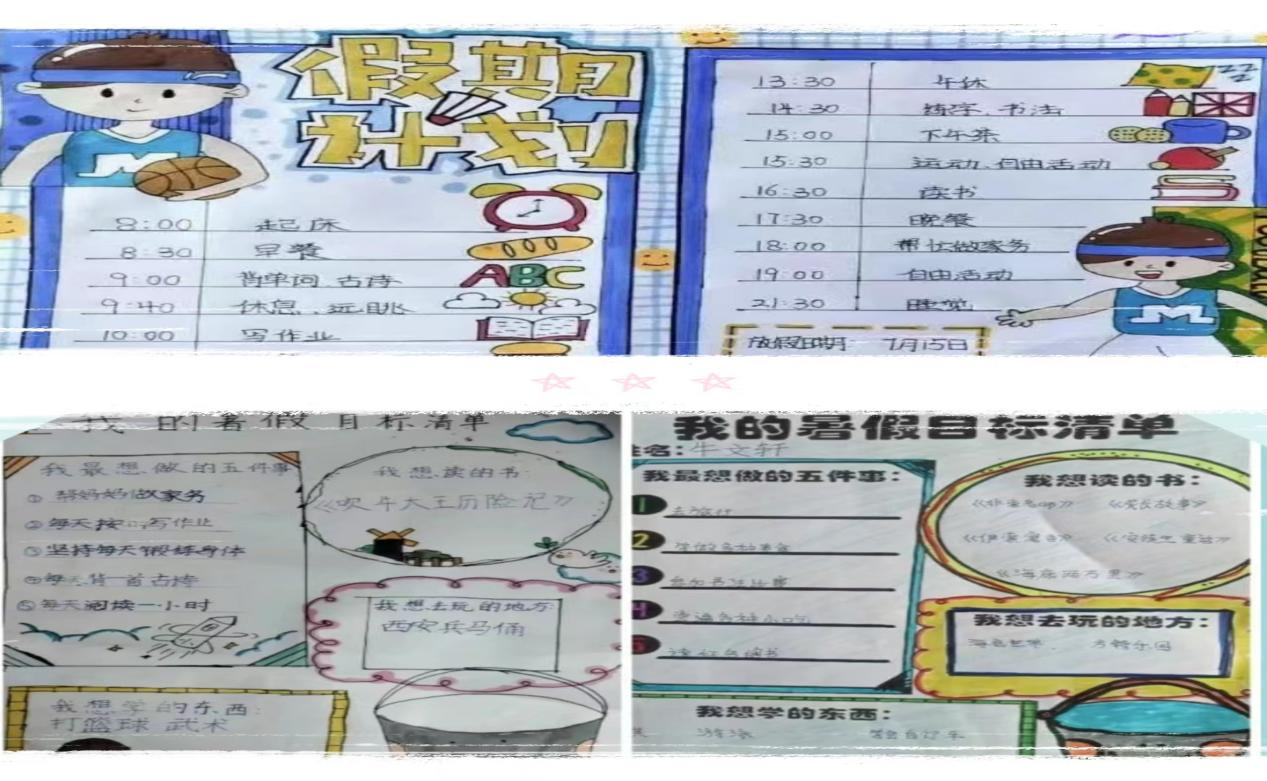 假期
计划
8:00 起床
8:30 早餐
9:00 背单词、古诗
ABC
9:40 休息、远眺
10:00 写作业
13:30 午休
14:30 练字、书法
15:00 下午茶
15:30 运动、自由活动
16:30 读书
17:30 晚餐
18:00 帮忙做家务
19:00 自由活动
21:30 睡觉
放假日期 7月15日
M
M
我的暑假目标清单
我最想做的五件事
①帮妈妈做家务
②每天按时写作业
③坚持每天锻炼身体
④每天背一首古诗
⑤每天阅读一小时
我想读的书:
《吹牛大王历险记》
我想去玩的地方:
西安兵马俑
我想学的东西:
打篮球 武术
我的暑假目标清单
姓名:牛文轩
我最想做的五件事:
1 去旅行
2
3 参加书法比赛
4
5
我想读的书:
《伊索寓言》 《安徒生童话》
《海底两万里》
我想去玩的地方:
海底世界、方特乐园
我想学的东西:
游泳